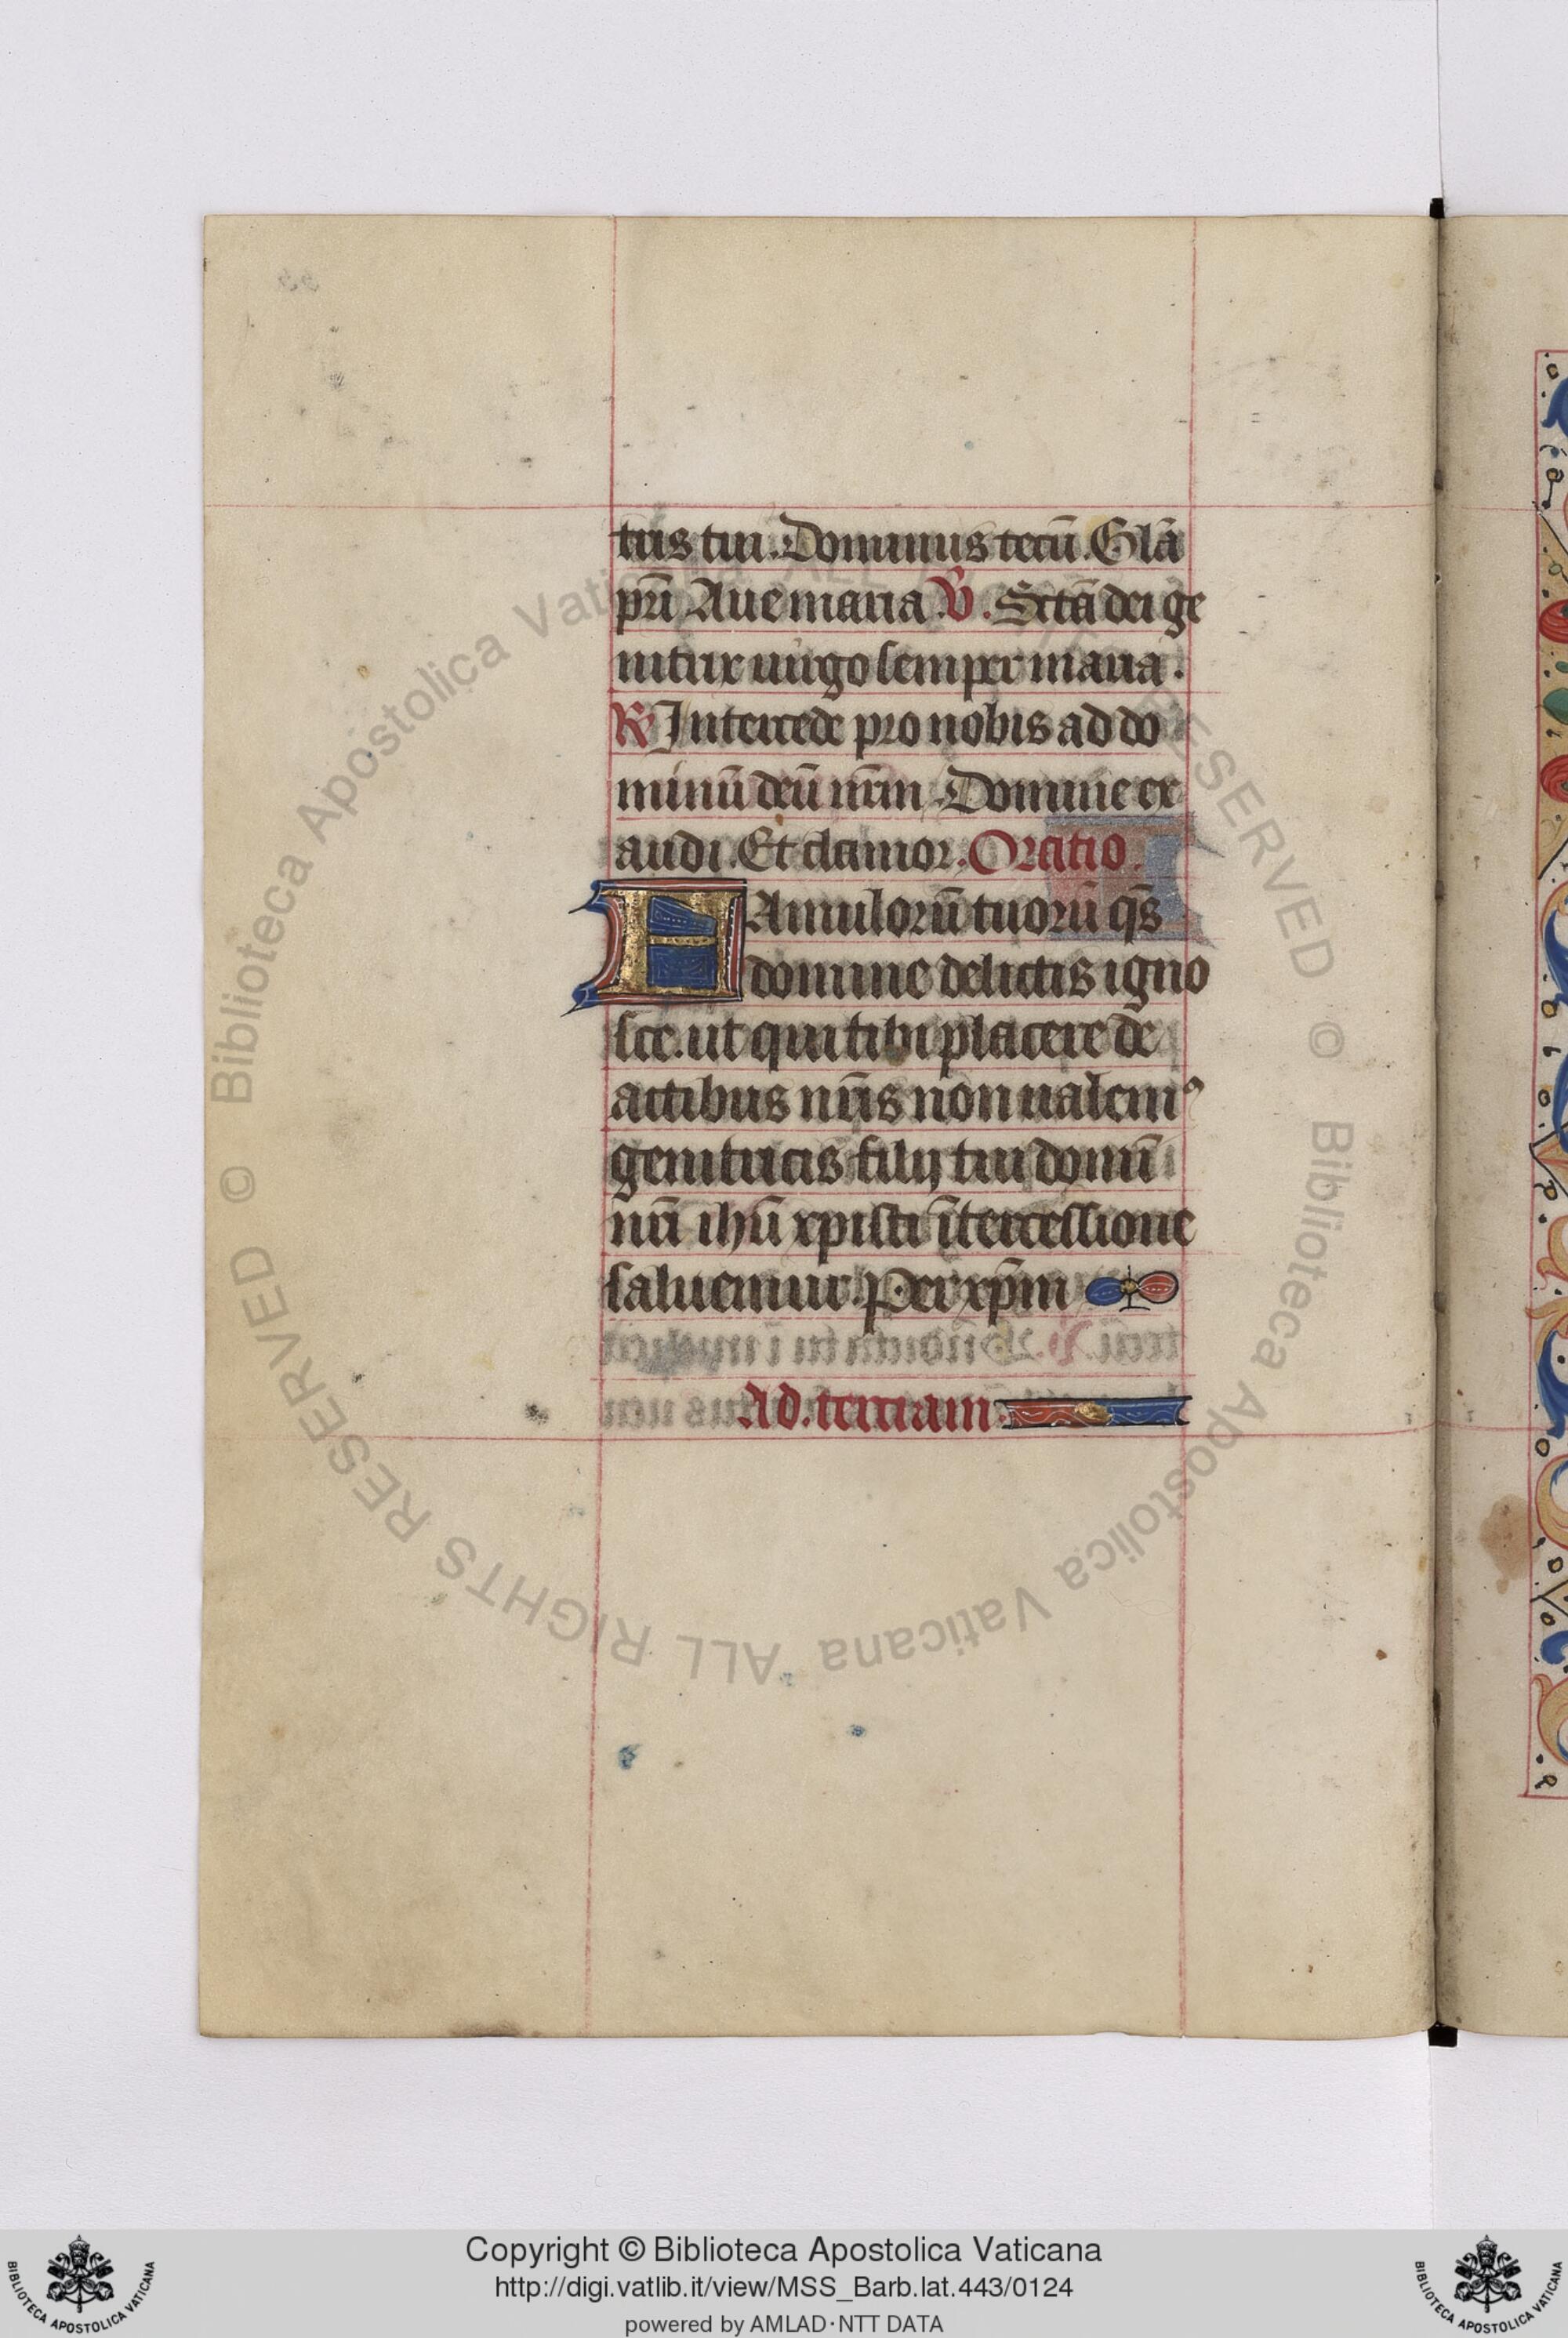 tris tui. Dominus tecū. Glā
pr̄i Aue maria. ℣. Sctā dei ge
nitrix uirgo semper maria.
℟ Intercede pro nobis ad do
minū deū nr̄m. Domine ex
audi. Et clamor. Oratio.
FAmulorū tuorū qs̄
domine delictis igno
sce. ut qui tibi placere de
actibus nr̄is non ualemꝰ
genitricis filij tui domī
nr̄i ihū xpisti ītercessione
saluemur. Per xp̄m
Ad. terciam.
© Biblioteca Apostolica Vaticana ALL RIGHTS RESERVED © Biblioteca Apostolica Vaticana ALL RIGHTS RESERVED
BIBLIOTECA APOSTOLICA VATICANA
Copyright © Biblioteca Apostolica Vaticana
http://digi.vatlib.it/view/MSS_Barb.lat.443/0124
powered by AMLAD·NTT DATA
BIBLIOTECA APOSTOLICA VATICANA